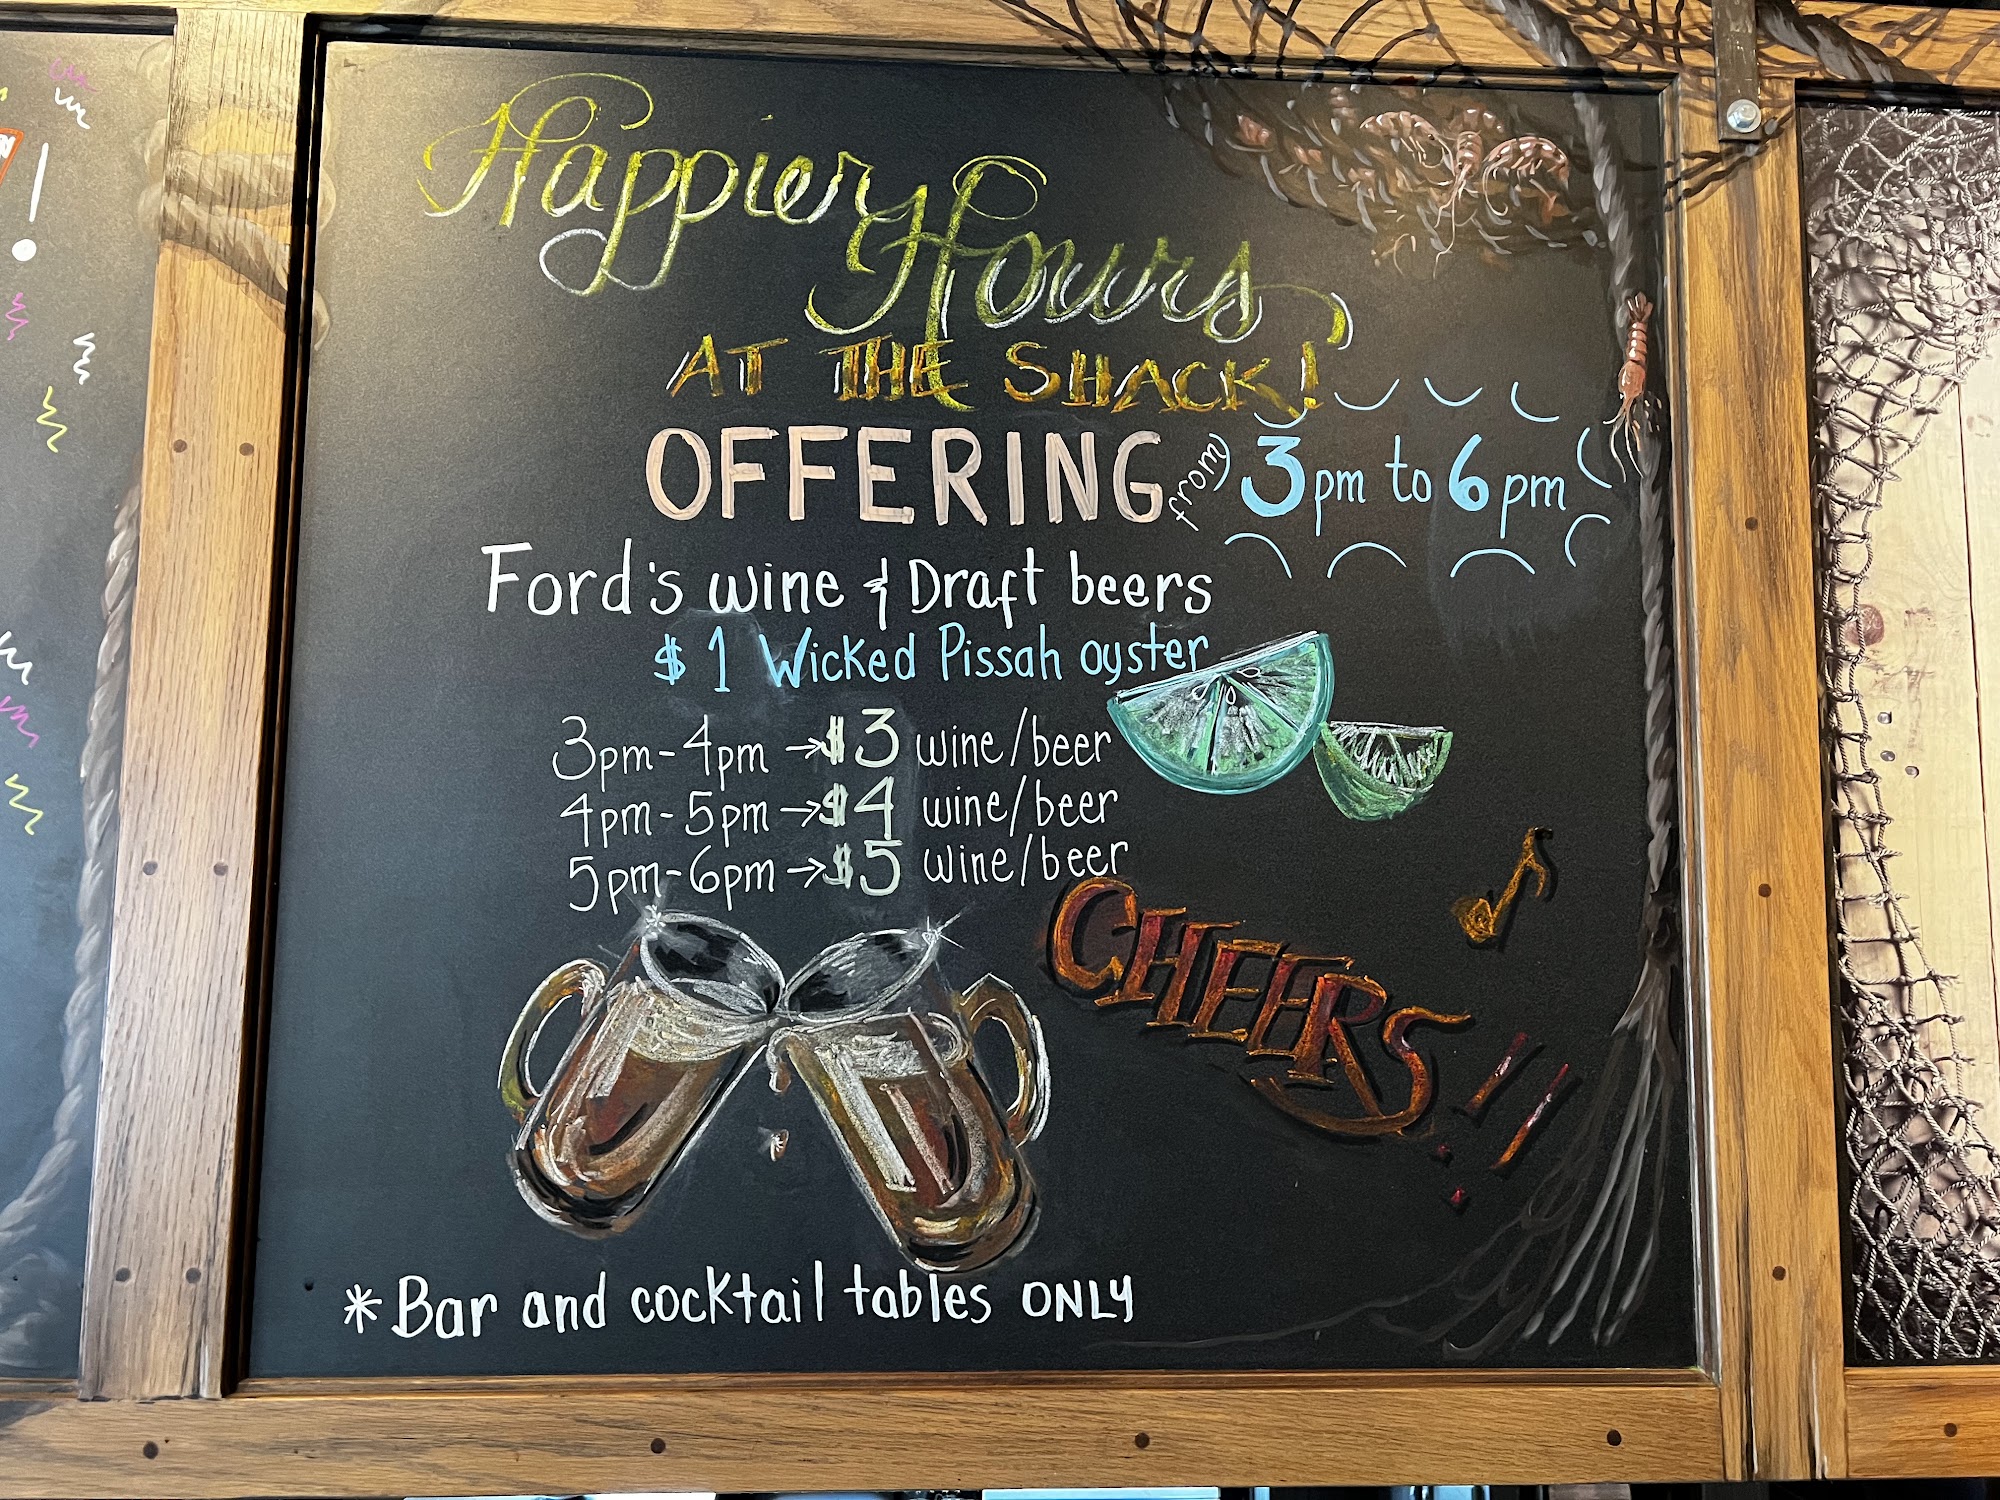 Happier Hours
AT THE SHACK!
OFFERING from 3pm to 6pm
Ford's wine & Draft beers
$1 Wicked Pissah oyster
3pm-4pm → $3 wine/beer
4pm-5pm → $4 wine/beer
5pm-6pm → $5 wine/beer
CHEERS!!
*Bar and cocktail tables ONLY